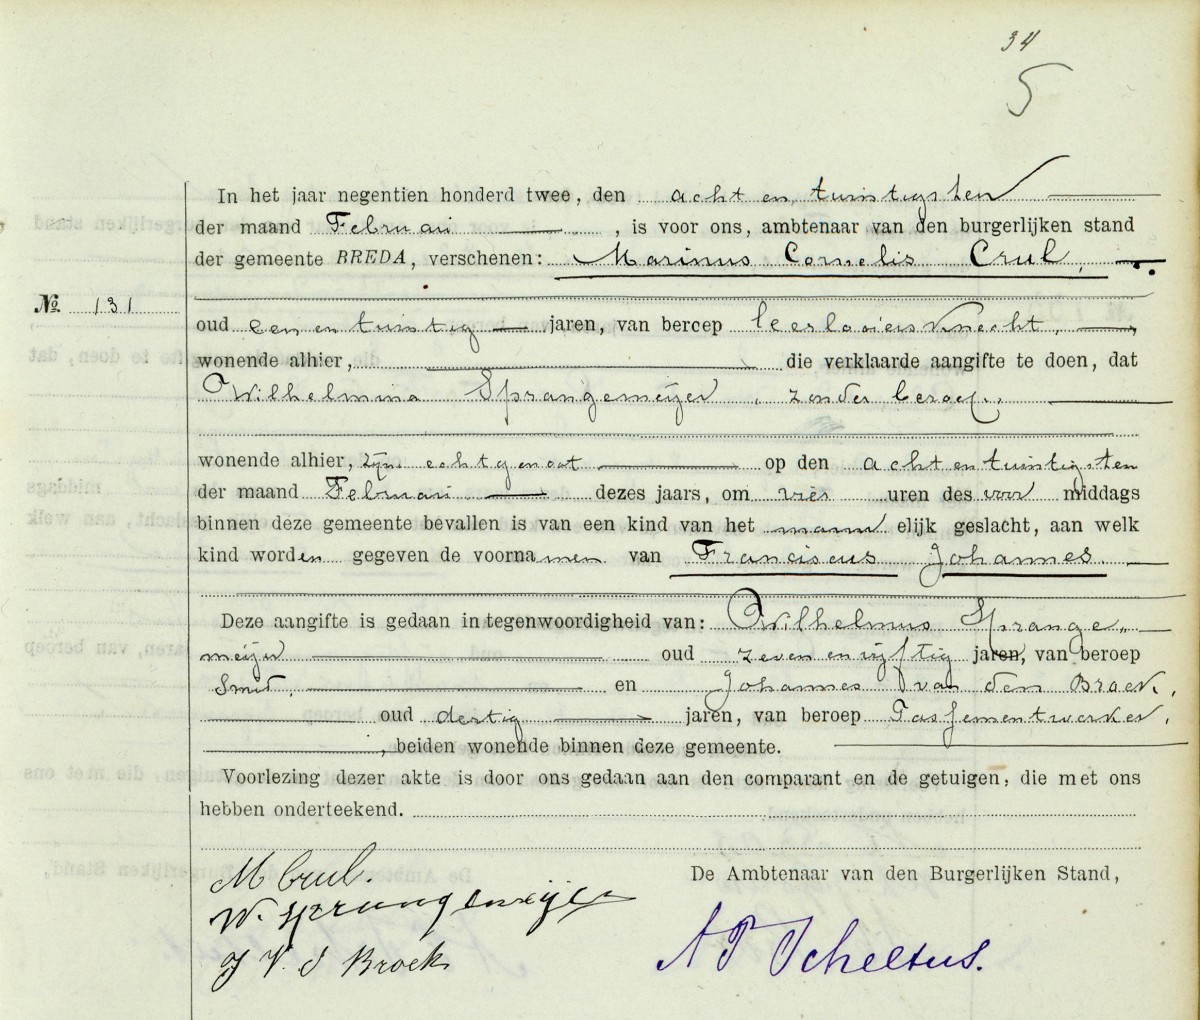 34
5
In het jaar negentien honderd twee, den acht en twintigsten
der maand Februari, is voor ons, ambtenaar van den burgerlijken stand
der gemeente BREDA, verschenen: Marinus Cornelis Crul,
No. 131
oud een en twintig jaren, van beroep leerlooiersknecht,
wonende alhier, die verklaarde aangifte te doen, dat
Wilhelmina Sprangemeijer, zonder beroep,
wonende alhier, zijne echtgenoot op den acht en twintigsten
der maand Februari dezes jaars, om vier uren des voor middags
binnen deze gemeente bevallen is van een kind van het mann elijk geslacht, aan welk
kind worden gegeven de voornamen van Franciscus Johannes.
Deze aangifte is gedaan in tegenwoordigheid van: Wilhelmus Sprange„
meijer oud zeven en vijftig jaren, van beroep
Smid, en Johannes van den Broek,
oud dertig jaren, van beroep Passementwerker,
, beiden wonende binnen deze gemeente.
Voorlezing dezer akte is door ons gedaan aan den comparant en de getuigen, die met ons
hebben onderteekend.
De Ambtenaar van den Burgerlijken Stand,
M Crul.
W. Sprangemeijer
J V. d Broek
A P Scheltus.